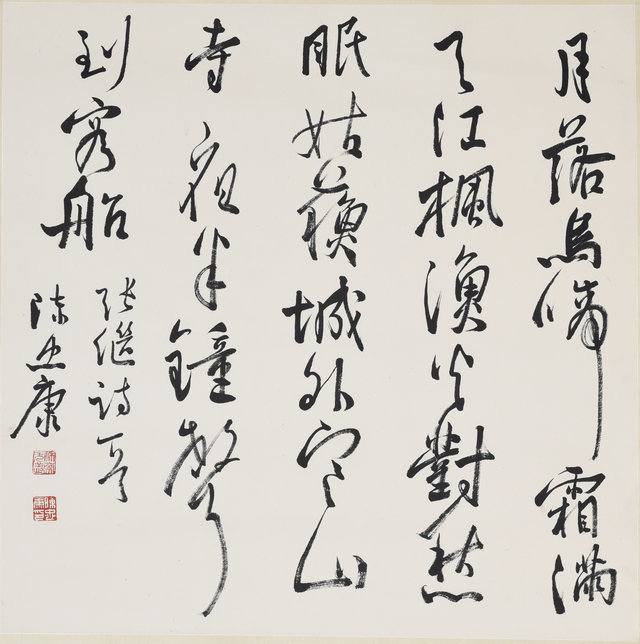 月落烏啼霜滿
天江楓漁火對愁
眠姑蘇城外寒山
寺夜半鐘聲
到客船
張繼詩
陳忠康